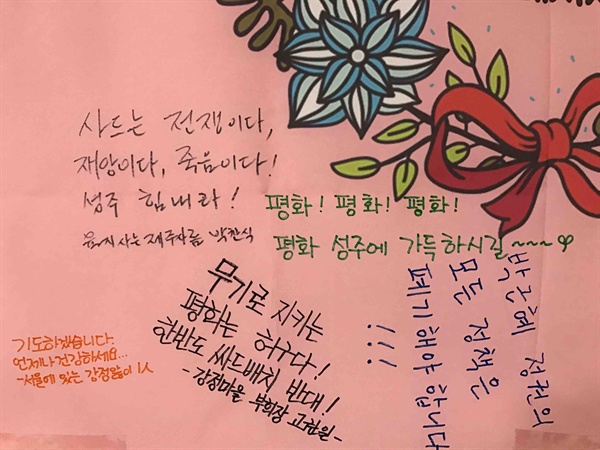 사드는 전쟁이다,
재앙이다, 죽음이다!
성주 힘내라!
육지 사는 제주사름 박찬식
평화! 평화! 평화!
평화 성주에 가득하시길~~~
무기로 지키는
평화는 허구다!
한반도 싸드배치 반대!
- 강정마을 부회장 고권일 -
기도하겠습니다.
언제나 건강하세요...
-서울에 있는 강정앓이 1人
박근혜 정권의
모든 정책은
폐기해야 합니다
!!!